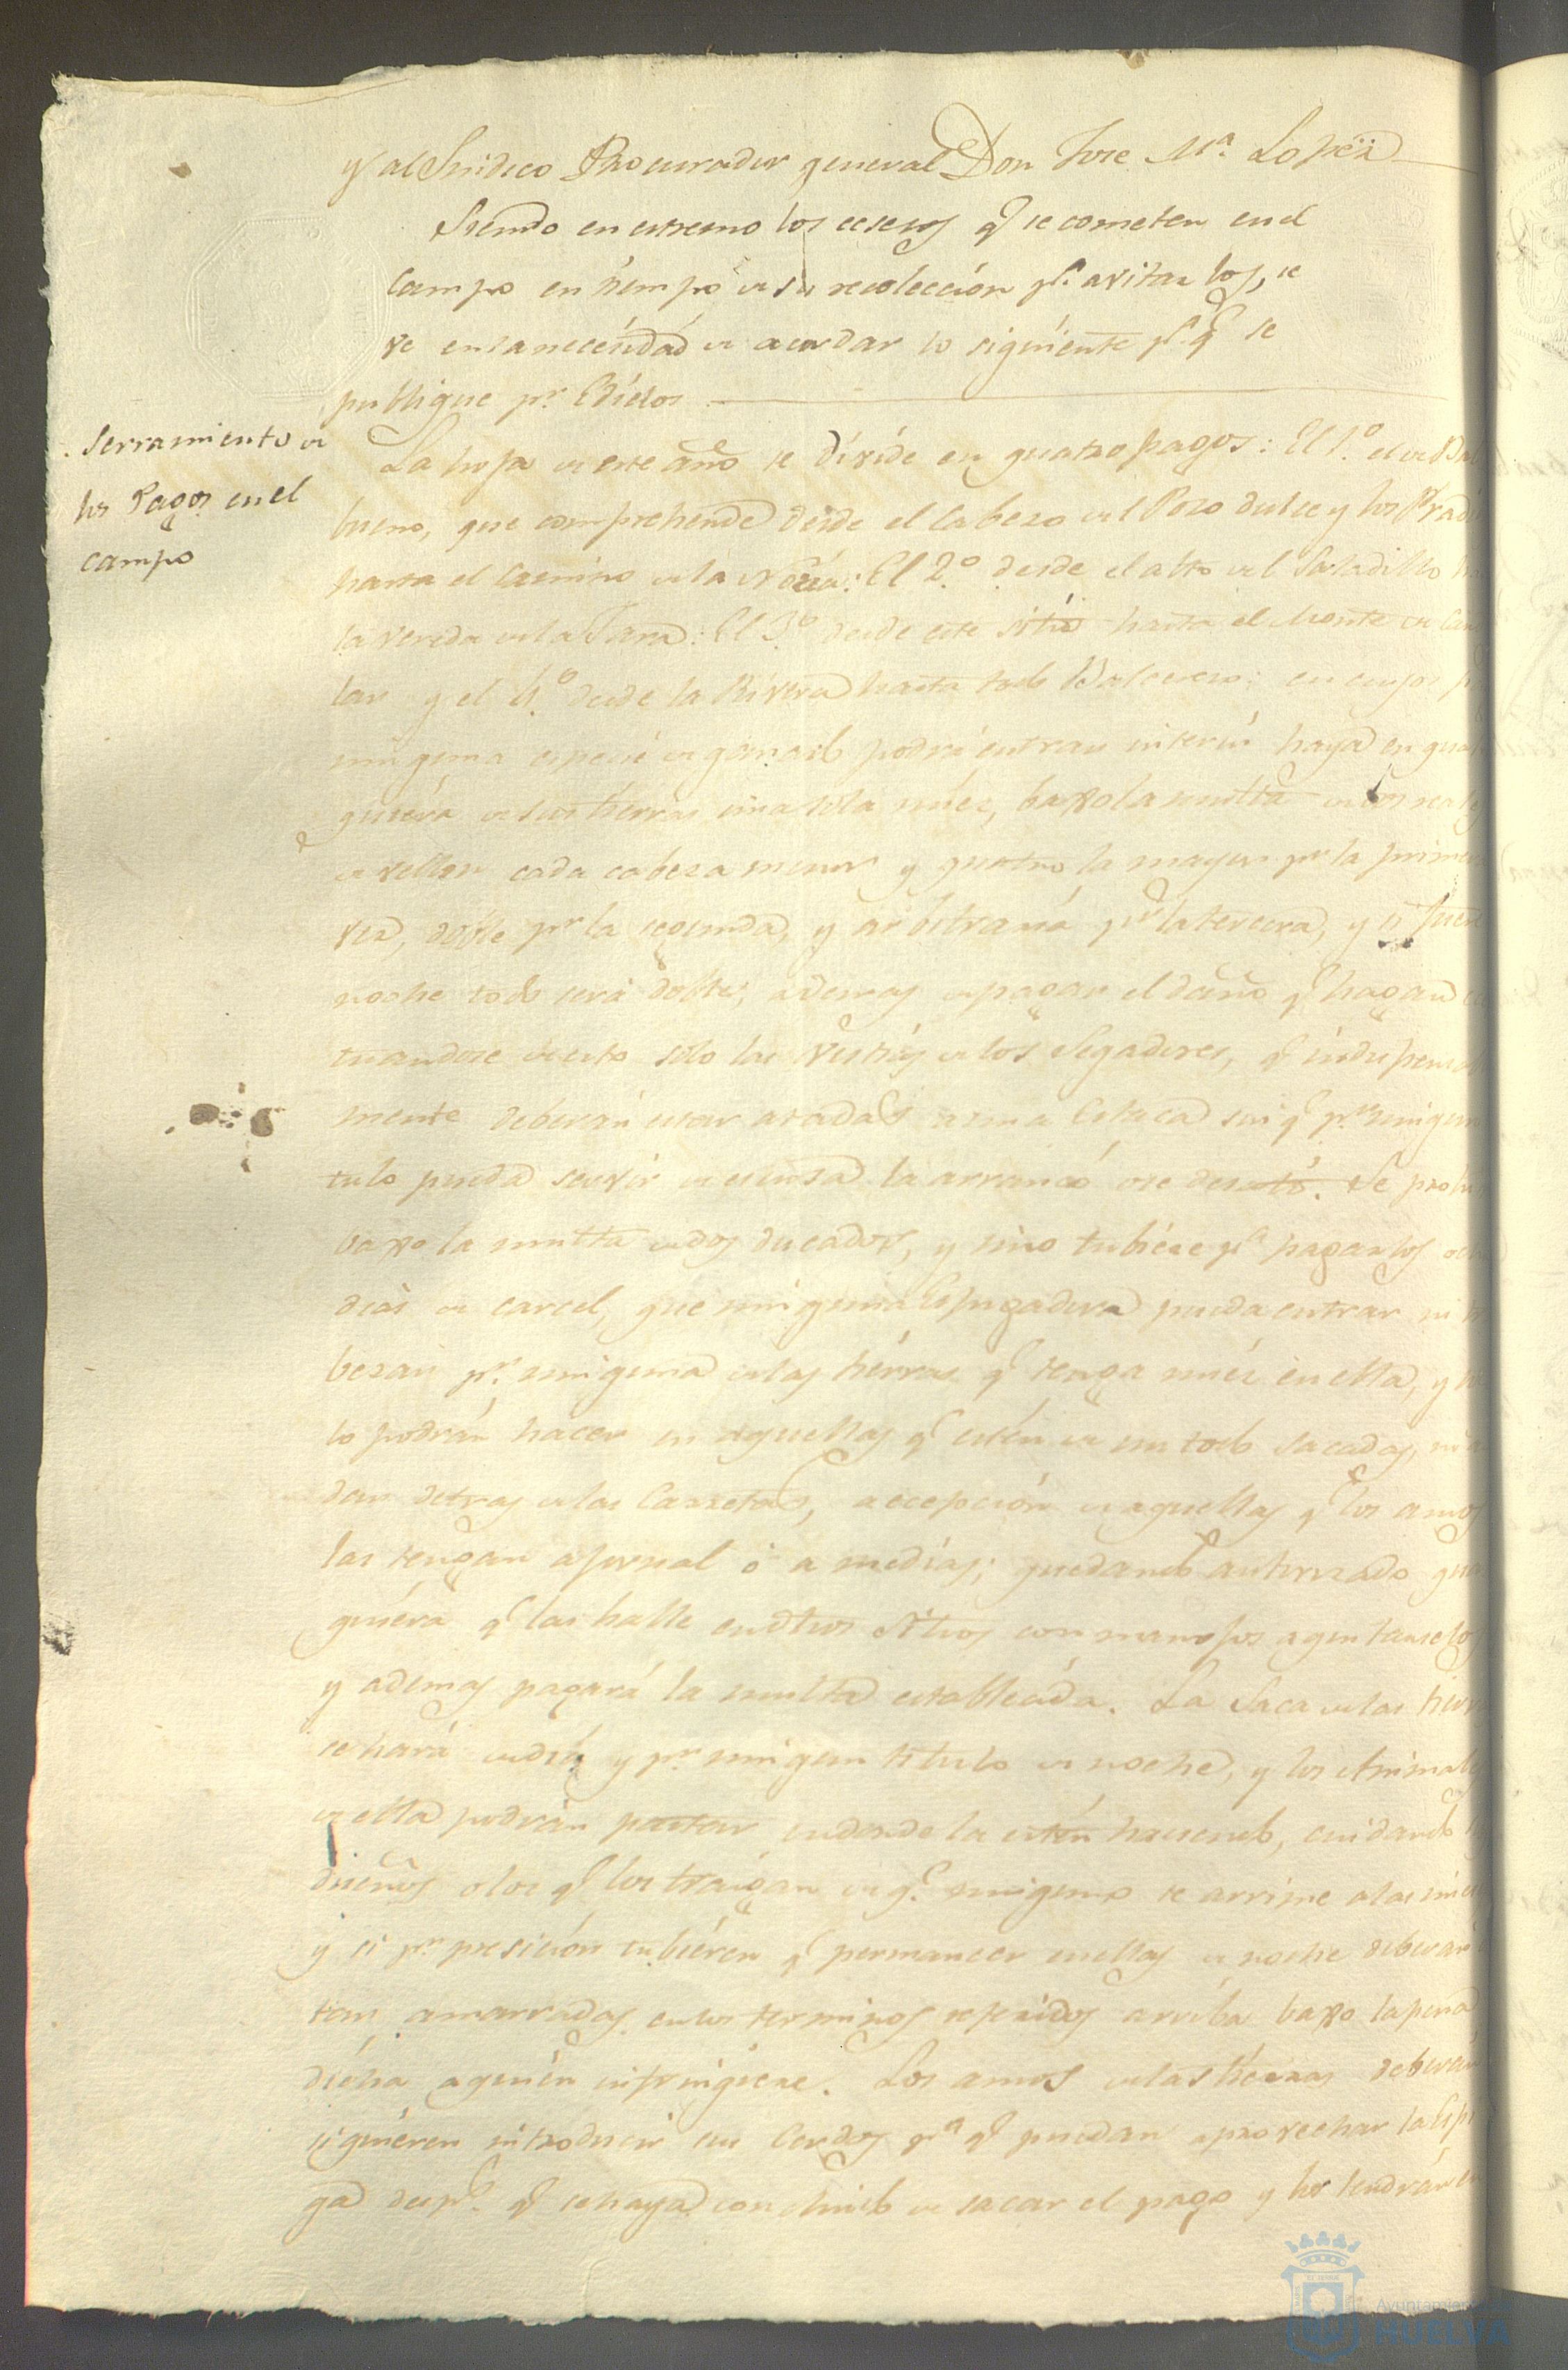 y al Sindico Procurador general Don Jose Mª. Lopez
Siendo en estremo los ecsesos q.e se cometen en el
campo en tiempo de su recolección pª. avitar los, se
ve en la necesidad de acordar lo siguiente pª. q.e se
publique pr. Edictos
Serramiento de
los Pagos en el
campo
La hoja de este año se divide en quatro pagos: El 1º. el de
bueno, que comprehende desde el Cabezo del Pozo dulce y los
hasta el camino de la Noria: El 2º. desde el alto del Saladillo
la vereda de la: El 3º. desde este sitio hasta el Monte de
lar y el 4º. desde la Rivera hasta todo Balcasero: en cuyos
ninguna especie de ganado podrá entrar interin haya en qual
quiera de sus tierras una sola mies, baxo la multa de dos reales
de vellon cada cabeza menor y quatro la mayor pr. la primera
vez, doble pr. la segunda, y arbitraria pr. la tercera, y si fuere
noche todo será doble, ademas de pagar el daño q.e hagan
tuandose de esto solo las vestias de los Segadores, q.e indispensable
mente deberán estar atadas a una Estaca sin q.e pr. ningun
tulo pueda servir de escusa la arrancó o se desató. Se prohi
baxo la multa de dos ducados, y sino tubiere pª. pagarlos
dias de carcel, que ninguna Espigadera pueda entrar ni
bezar pr. ninguna de las tierras q.e tenga mies en ella, y
lo podrán hacer en aquellas q.e estén de un todo sacadas,
dar detras de las Carretas, a ecepción de aquellas q.e los amos
las tengan a jornal ó a medias; quedando autorizado qual
quiera q.e las halle en otros sitios con manojos a quitarselos
y ademas pagará la multa establecida. La Saca de las
se hará de dia y pr. ningun titulo de noche, y los Animales
de ella podrán pastar en donde la estén haciendo, cuidando
dueños o los q.e los traigan de q.e ninguno se arrime a las mies
y si pr. presición tubieren q.e permanecer en ellas de noche deberán
tenr. amarradas en los terminos referidos arriba baxo la pena
dicha a quien infringiere. Los amos de las tierras deberan
si quieren introducir sus Cerdos pª. q.e puedan aprovechar la Espi
ga desp.s q.e se haya concluido de sacar el pago y los tendrán
Ayuntamiento
HUELVA